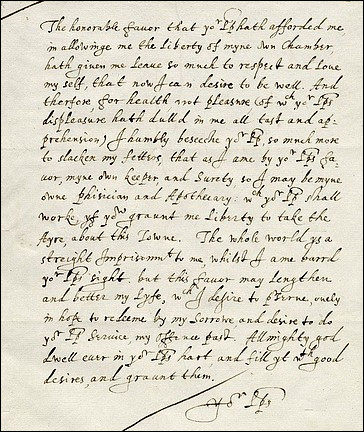 The honorable favor that yor Lp hath afforded me
in allowinge me the Liberty of myne own Chamber
hath given me Leave so much to respect and Love
my self, that now I can desire to be well. And
therfore for health not pleasure (of wch yor Lps
displeasure hath dulld in me all tast and ap-
prehension) I humbly beseeche yor Lp, so much more
to slacken my fetters, that as I ame by yor Lps fa-
vor, myne own keeper and Surety, so I may be myne
owne phisician and Apothecary: wch yor Lp shall
worke, yf yow graunt me Liberty to take the
Ayre, about this Towne. The whole world ys a
streight Imprisonmt to me whilst I ame barrd
yor Lps sight. but this favor may Lengthen
and better my Lyfe, wch I desire to preserve, onely
in hope to redeeme by my Sorrowe and desire to do
yor Lp Service, my offence past. Allmighty god
dwell ever in yor Lps hart, and fill yt wth good
desires, and graunt them.
Yor Lps